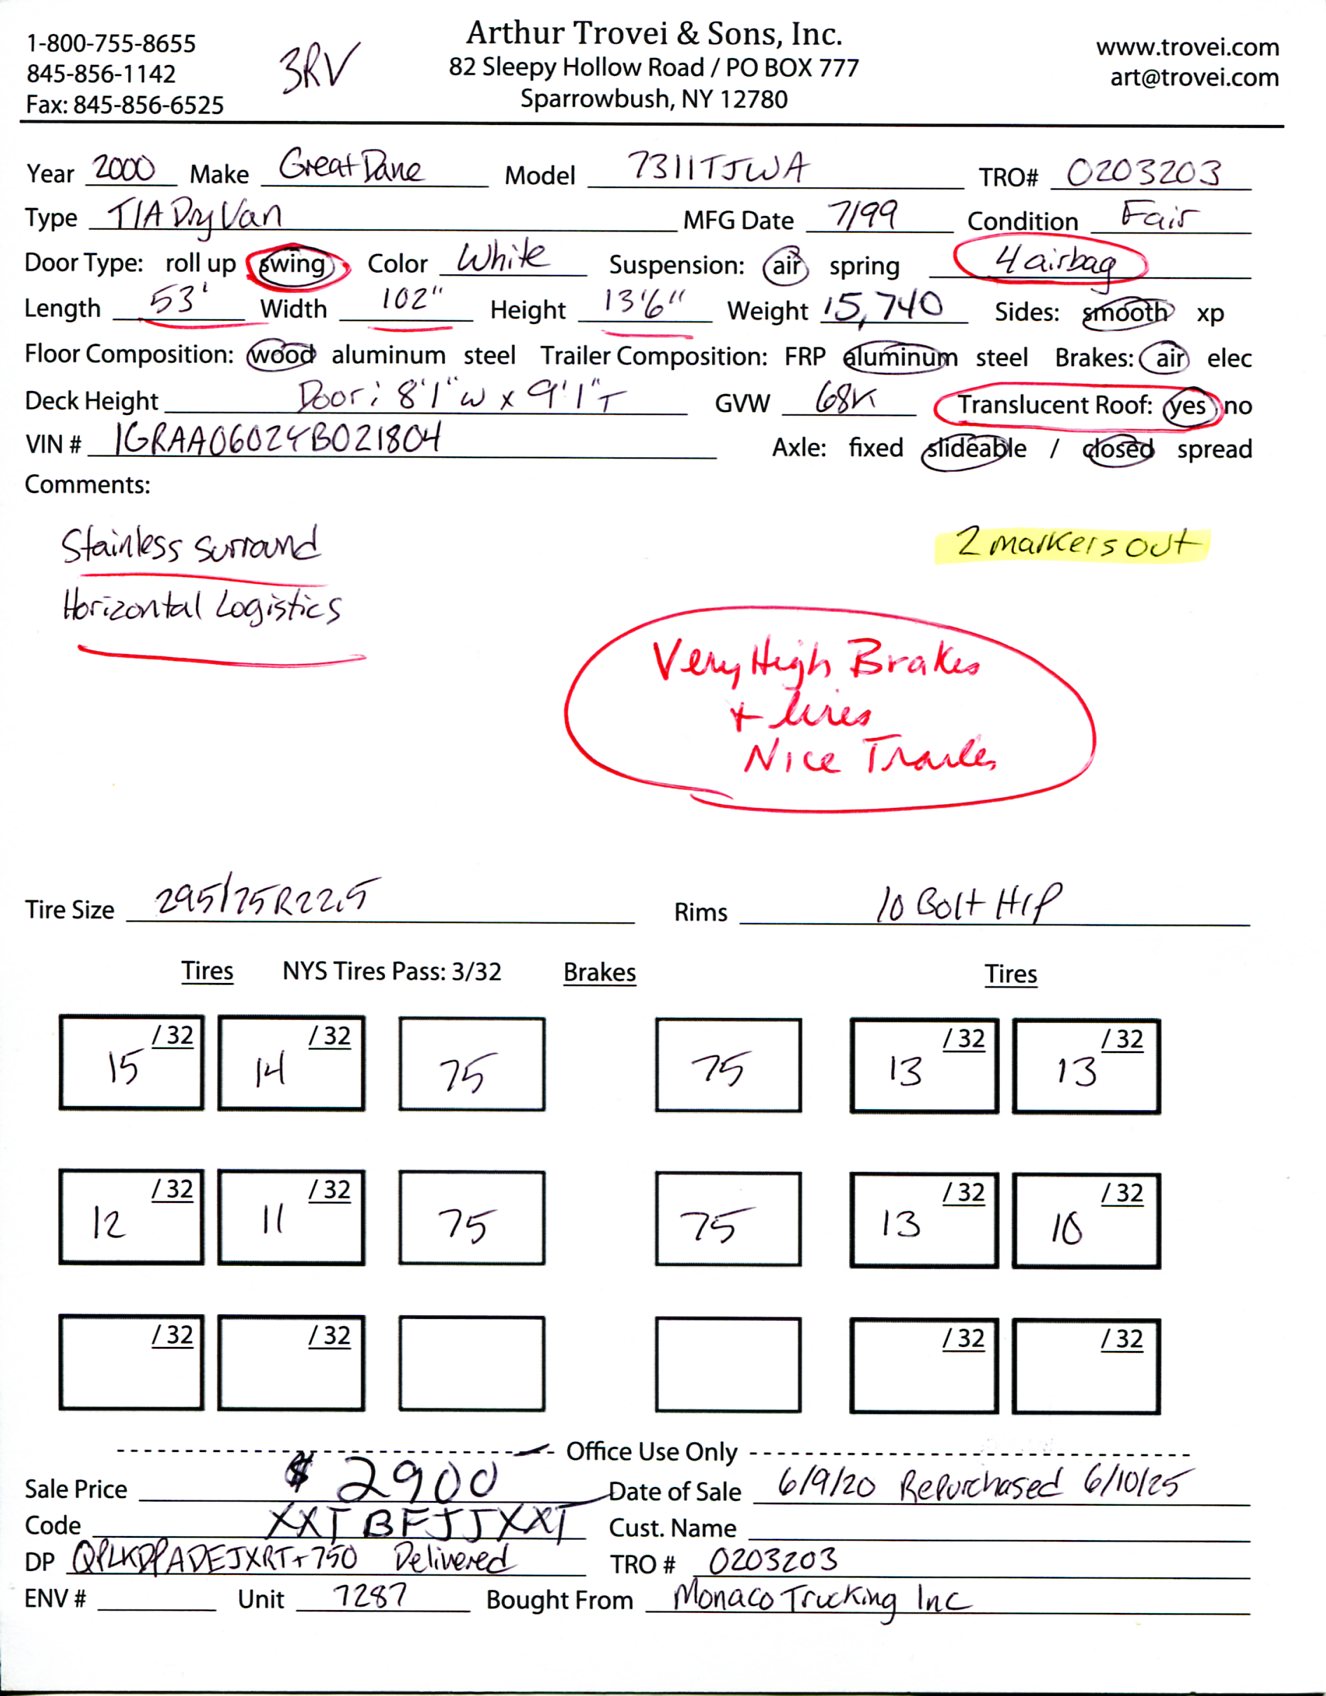 1-800-755-8655
845-856-1142
Fax: 845-856-6525
3RV
Arthur Trovei & Sons, Inc.
82 Sleepy Hollow Road / PO BOX 777
Sparrowbush, NY 12780
www.trovei.com
art@trovei.com
Year 2000 Make Great Dane Model 7311TJWA TRO# 0203203
Type T/A Dry Van MFG Date 7/99 Condition Fair
Door Type: roll up swing Color White Suspension: air spring 4 airbag
Length 53' Width 102" Height 13'6" Weight 15,740 Sides: smooth xp
Floor Composition: wood aluminum steel Trailer Composition: FRP aluminum steel Brakes: air elec
Deck Height Door: 8'1"W x 9'1"T GVW 68K Translucent Roof: yes no
VIN # 1GRAA0602YB021804 Axle: fixed slideable / closed spread
Comments:
Stainless Surround
2 markers out
Horizontal Logistics
Very High Brakes
+ tires
Nice Trailer
Tire Size 295/75R22.5 Rims 10 Bolt H/P
Tires NYS Tires Pass: 3/32 Brakes Tires
15 /32 14 /32 75 75 13 /32 13 /32
12 /32 11 /32 75 75 13 /32 10 /32
/32 /32 /32 /32
Office Use Only
Sale Price $2900 Date of Sale 6/9/20 Repurchased 6/10/25
Code XXTBFJJXXT Cust. Name
DP QPLKDPADEJXRT+750 Delivered TRO # 0203203
ENV # Unit 7287 Bought From Monaco Trucking Inc